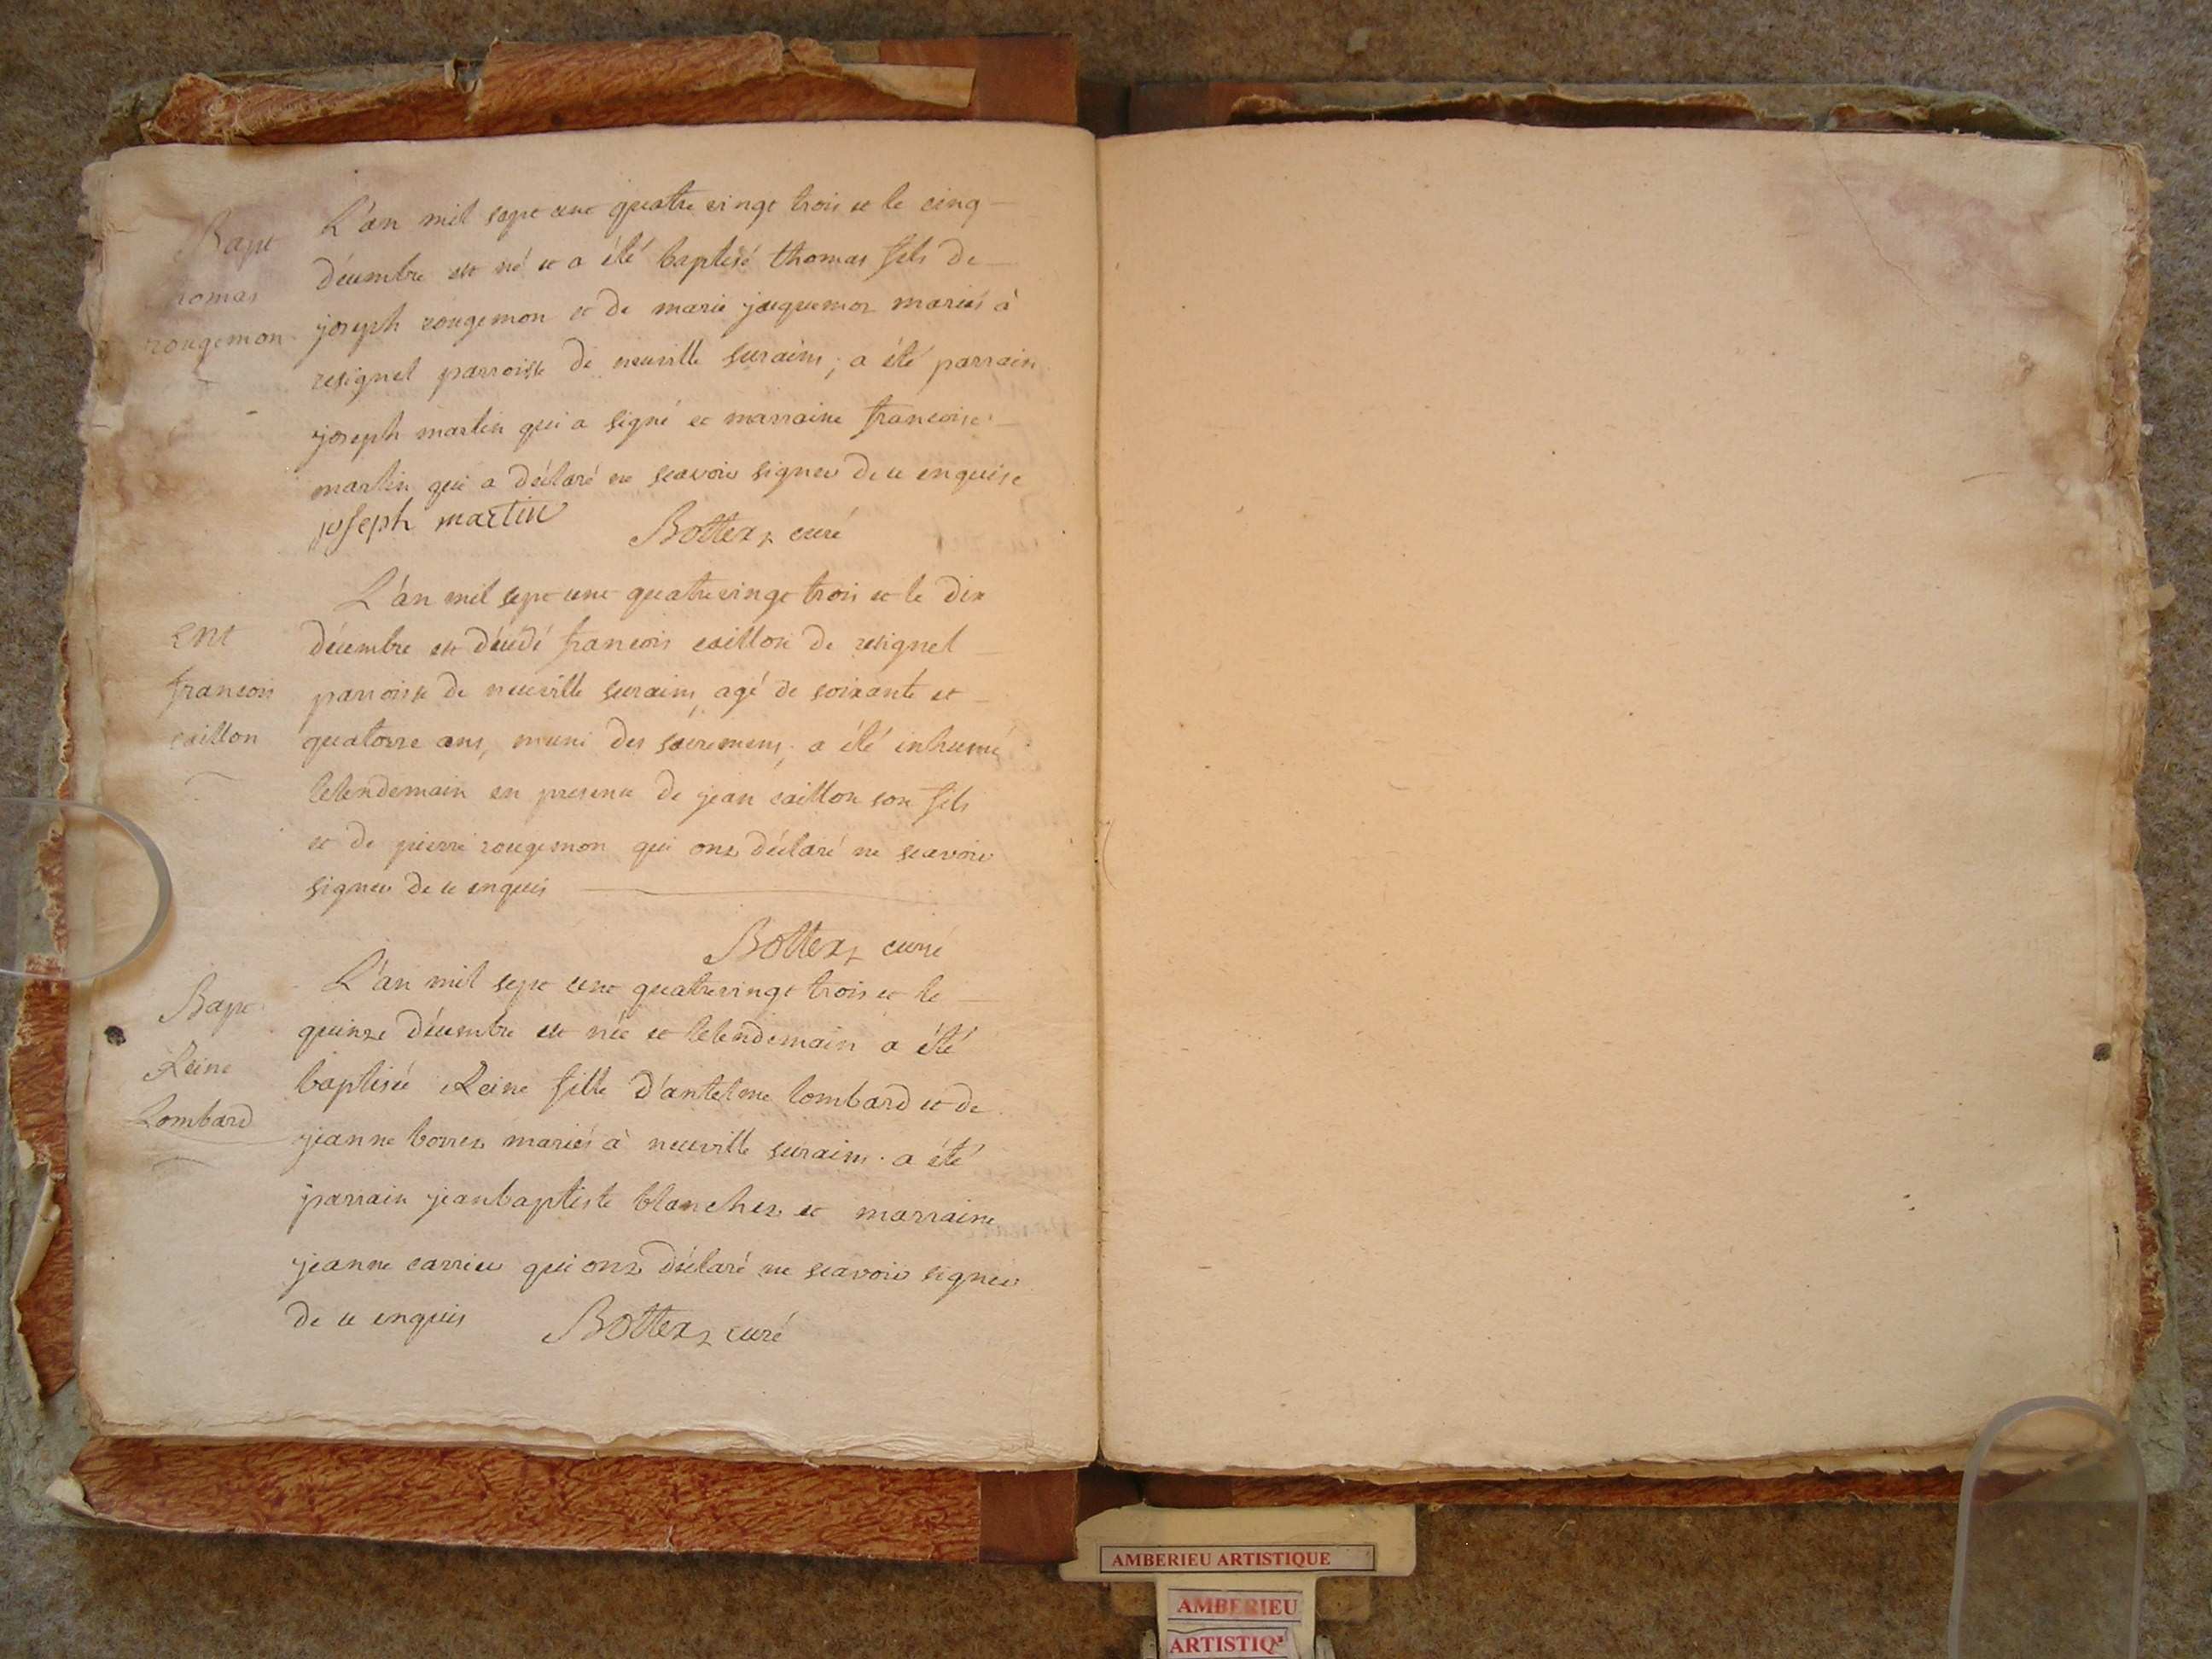 Bapt
thomas
rougemon
L'an mil sept cent quatre vingt trois et le cinq
décembre est né et a été baptisé thomas fils de
joseph rougemon et de marie jacquemor mariés à
resignel parroisse de neuville surains; a été parrain
joseph martin qui a signé et marraine francoise
martin qui a déclaré ne scavoir signer de ce enquise
joseph martin Bottex, curé
Ent
francois
caillon
L'an mil sept cent quatrevingt trois et le dix
décembre est décédé francois caillon de resignel
parroisse de neuville surains, agé de soixante et
quatorze ans, muni des sacremens, a été inhumé
lelendemain en presence de jean caillon son fils
et de pierre rougemon qui ont déclaré ne scavoir
signer de ce enquis
Bottex, curé
Bapt
Reine
Lombard
L'an mil sept cent quatrevingt trois et le
quinze décembre est née et lelendemain a été
baptisée Reine fille d'antelme lombard et de
jeanne borrez mariés à neuville surains. a été
parrain jeanbaptiste blanchez et marraine
jeanne carrier qui ont déclaré ne scavoir signer
de ce enquis Bottex, curé
AMBERIEU ARTISTIQUE
AMBERIEU
ARTISTIQ